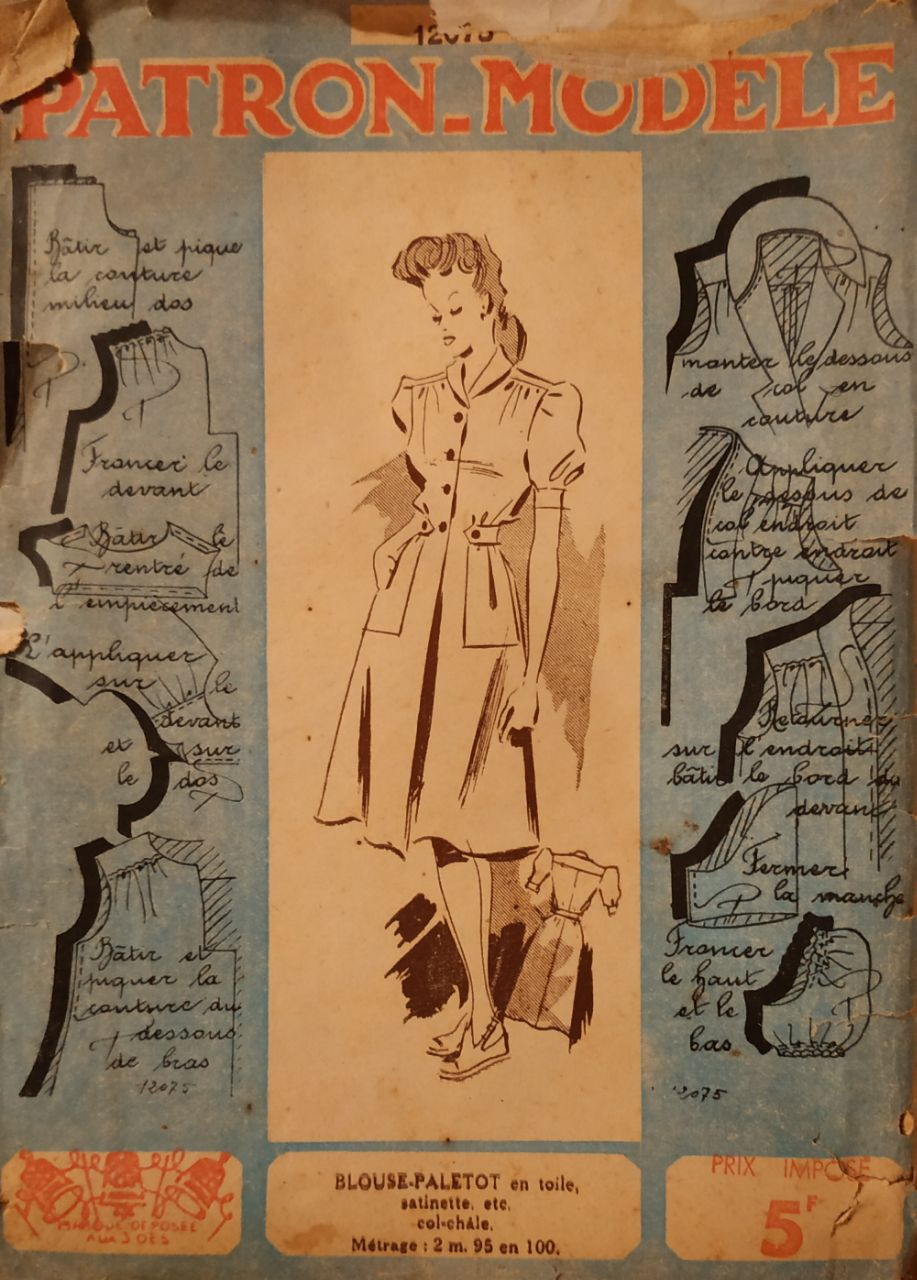 12075
PATRON-MODÈLE
Bâtir et pique
la couture
milieu dos
Francer le
devant
Bâtir le
rentré de
l'empiècement
L'appliquer
sur le
devant
et sur
le dos
Bâtir et
piquer la
couture du
dessous
de bras
12075
monter le dessous
de col en
couture
Appliquer
le dessus de
col endroit
contre endroit
piquer
le bord
Retourner
sur l'endroit
bâtir le bord du
devant
Fermer
la manche
Francer
le haut
et le
bas
12075
MARQUE DÉPOSÉE
AUX 3 DÉS
BLOUSE-PALETOT en toile,
satinette, etc.
col-châle.
Métrage : 2 m. 95 en 100.
PRIX IMPOSÉ
5F